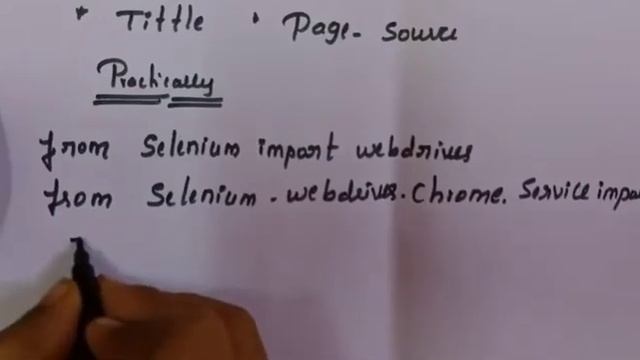 * Tittle • Page_source
Practically
from Selenium import webdriver
from Selenium.webdriver.Chrome.Service impo